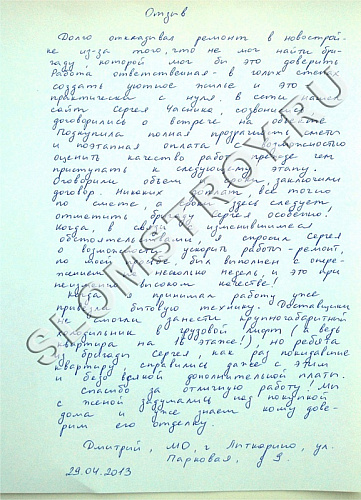 Отзыв
Долго откладывал ремонт в новострой-
ке из-за того, что не мог найти бри-
гаду, которой мог бы это доверить
Работа ответственная - в голых стенах
создать уютное жилье и это
практически с нуля. В сети нашел
сайт Сергея созвонились
договорились о встрече на объекте
Подкупила полная прозрачность сметы
и поэтапная оплата с возможностью
оценить качество работ прежде чем
приступать к следующему этапу.
Оговорили объем работ заключили
договор. Никаких доплат, всё точно
по смете, а сроки здесь следует
отметить бригаду Сергея особенно!
Когда, в связи с изменившимися
обстоятельствами, я спросил Сергея
о возможности ускорить работы - ремонт,
по моей просьбе, был выполнен с опере-
жением на несколько недель, и это при
неизменно высоком качестве!
Когда я принимал работу уже
привезли бытовую технику. Доставщики
не смогли занести крупногабаритный
холодильник в грузовой лифт (а ведь
квартира на 10 этаже!), но ребята
из бригады Сергея, как раз покидавшие
квартиру справились даже с этим
и безо всякой дополнительной платы.
Спасибо за отличную работу! Мы
с женой задумались над покупкой
дома и уже знаем кому дове-
рим его отделку.
Дмитрий, МО, г Лыткарино, ул.
Парковая, д 9.
29.04.2013
SKOMSTROY.RU